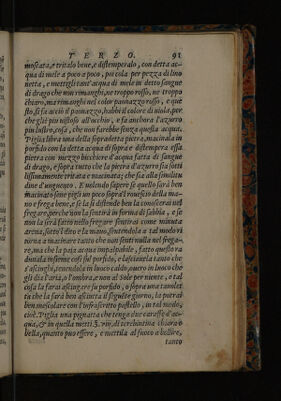 TERZO. 91
moscata, e tritalo bene, e distemperalo, con detta ac-
qua di mele a poco a poco, poi cola per pezza di lino
netta, e mettigli tant'acqua di mele in detto sangue
di drago che non rimanghi, ne troppo rosso, ne troppo
chiaro, ma rimanghi nel color pauonazzo rosso, e que
sto, si fa accio il pauonazzo, habbi il colore di viola, per
che glié piu nistoso all'occhio, e fa anchora l'azurro
piu lustro, cosa, che non farebbe senza questa acqua.
Piglia libra una della sopradetta pietra, macinala in
porfido con la detta acqua di sopra e distempera essa
pietra con mezzo bicchiere d'acqua fatta di sangue
di drago, e sopra tutto che la pietra d'azurro sia sotti
lissimamente tritata e macinata; che sia alla similitu
dine d'unguento. E uolendo sapere se quello sarà ben
macinato sime pigli un poco sopra'l rouescio della ma-
no e frega bene, e se la si distende ben la conoscerai nel
fregare, perche non la sentirai in forma di sabbia, e se
non la sarà fatta nello fregare sentirai come minuta
arena, sotto'l dito e la mano, sentendola a tal modo ri
torna a macinare tanto che non senti nulla nel frega-
re, ma che la paia acqua impalpabile, fatto questo ra
dunala insieme cosi sul porfido, e lasciauela tanto che
s'asciughi, tenendola in luoco caldo, ouero in luoco che
gli dia l'aria, o l'ombra, e non al Sole per niente, e tal
cosa la farai asciugare su porfido, o sopra una tauolet
ta che la sarà ben asciutta il seguente giorno, la potrai
ben mescolare con l'infrascritto pastello, in tal modo,
cioè. Piglia una pignatta che tenga due caraffe d'ac-
qua, & in quella metti ʒ. iiij. di terebintina chiara e
bella, quanto puo essere, e mettila al fuoco a bollire,
tanto